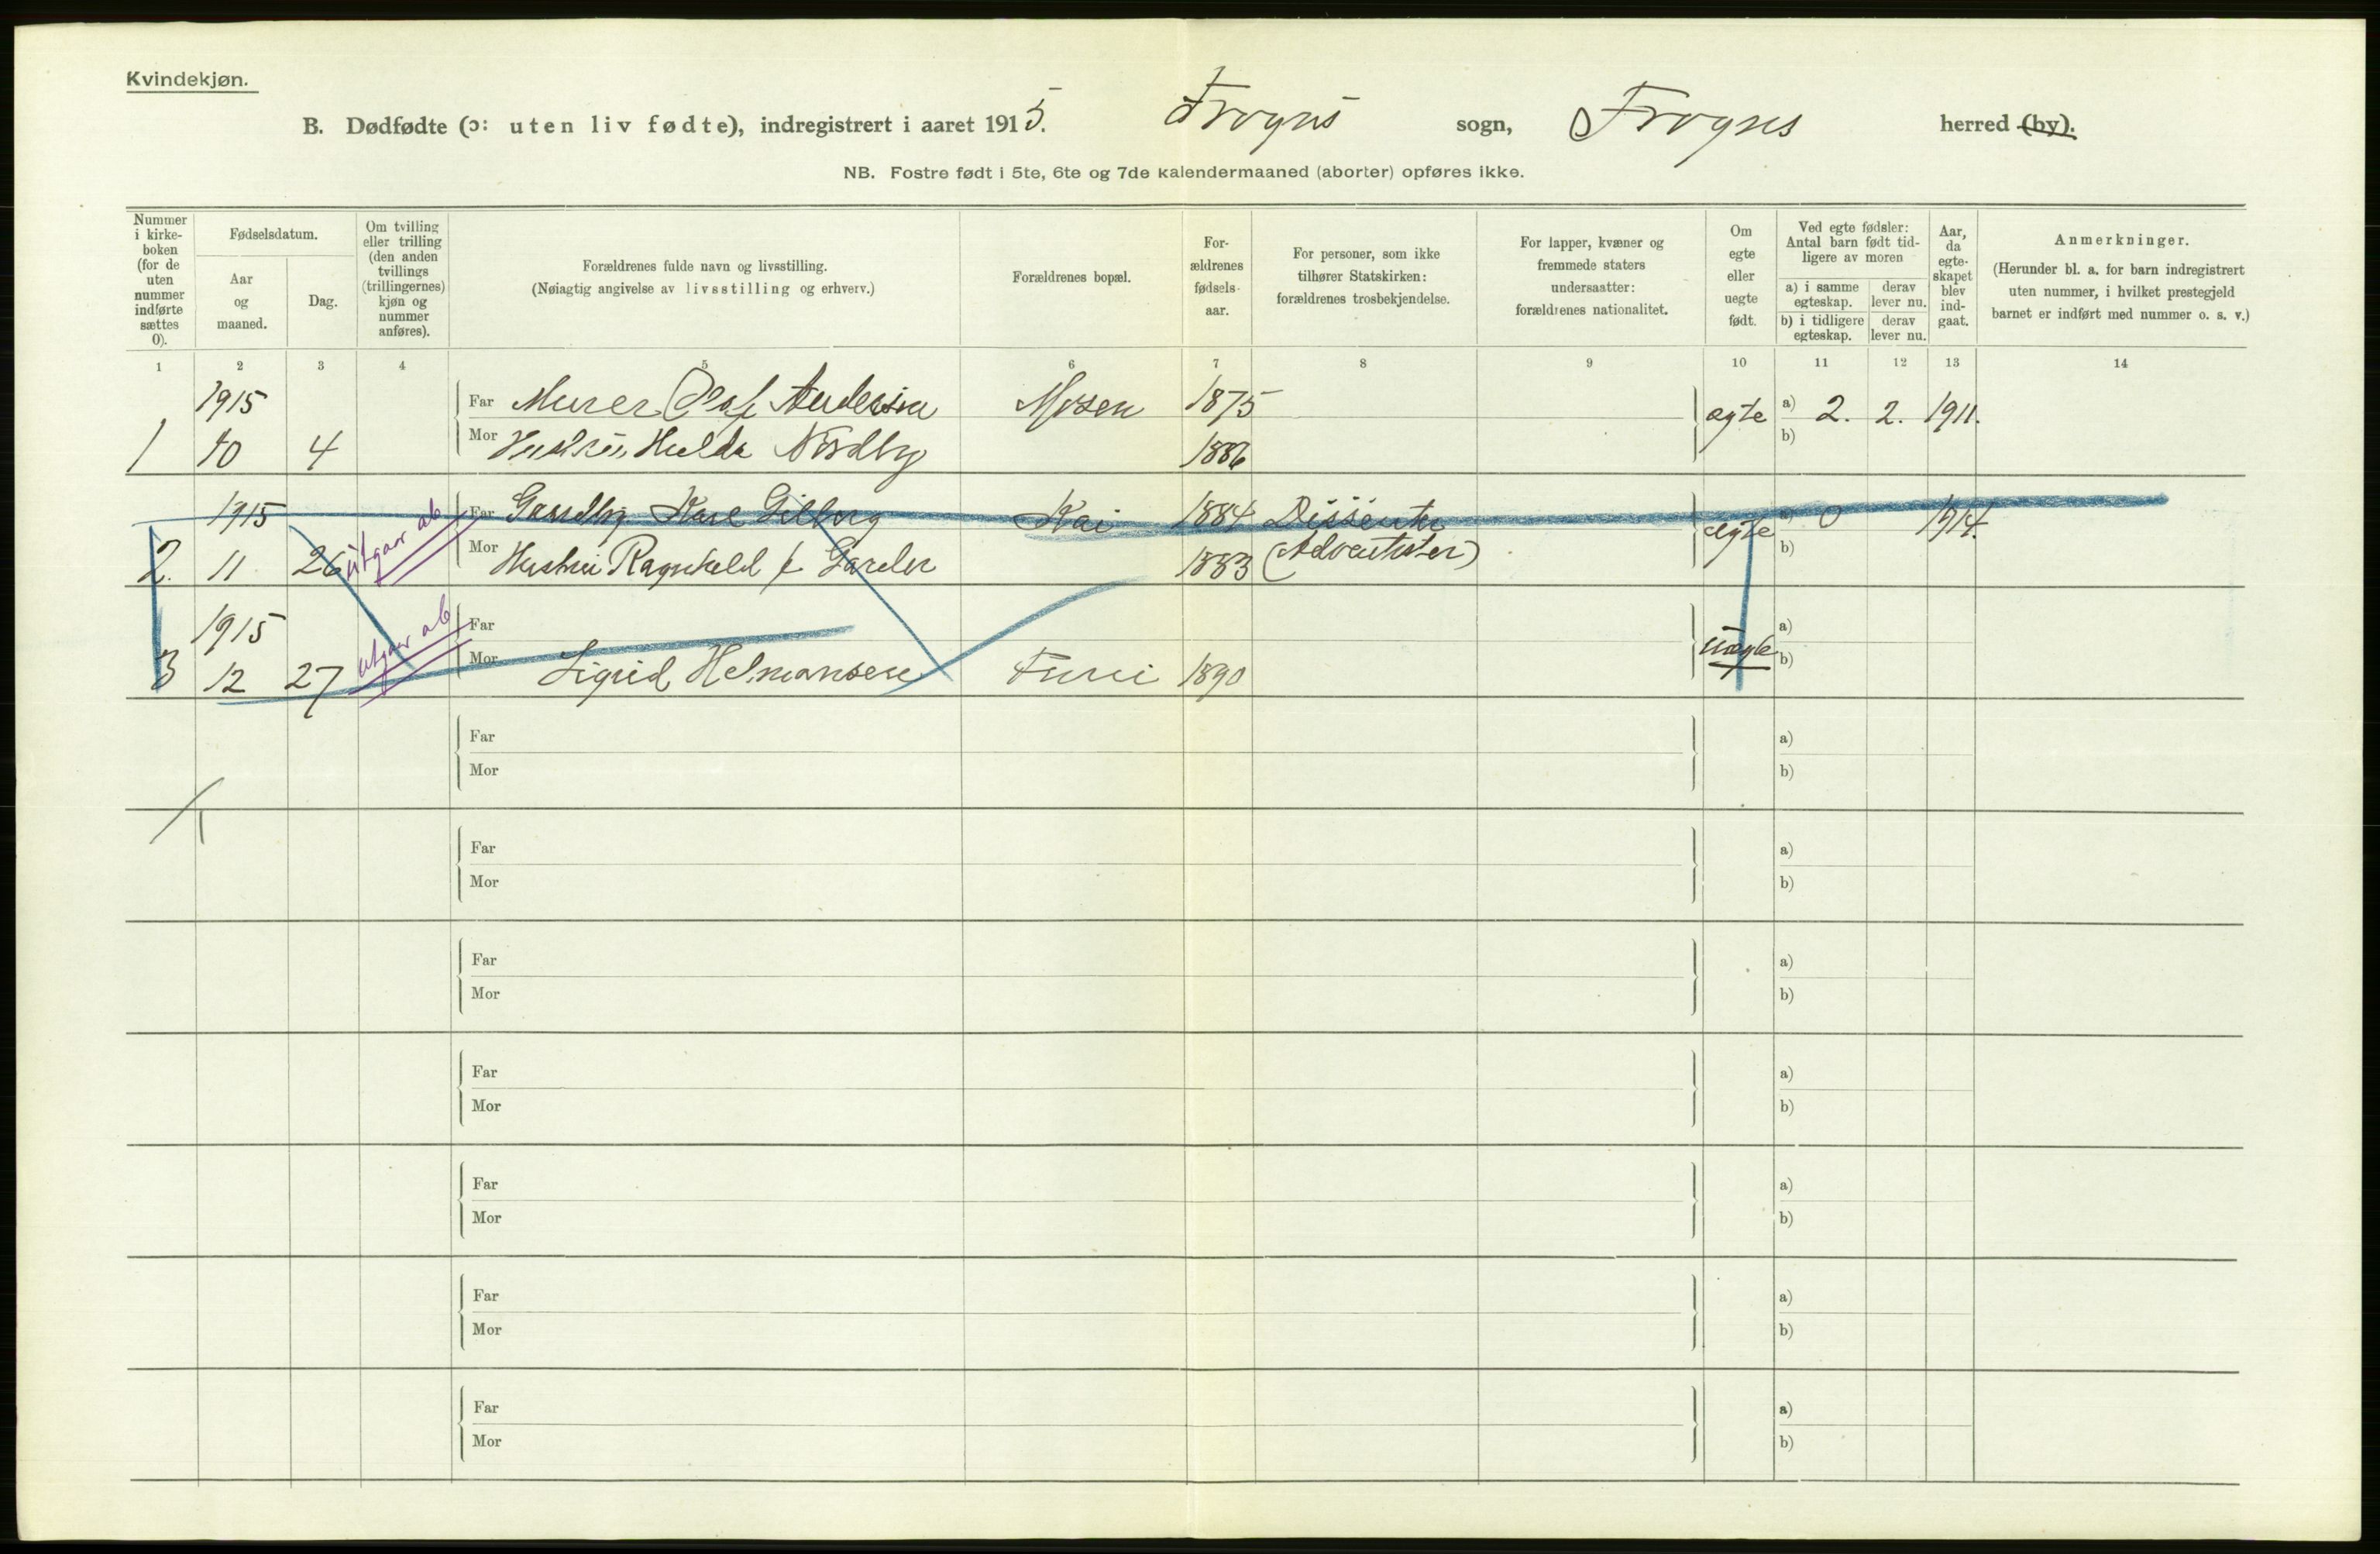 Kvindekjøn.
B. Dødfødte (ɔ: uten liv fødte), indregistrert i aaret 1915. Frogns sogn, Frogns herred (by).
NB. Fostre født i 5te, 6te og 7de kalendermaaned (aborter) opføres ikke.
Nummer i kirke-boken (for de uten nummer indførte sættes 0).
Fødselsdatum.
Aar og maaned.
Dag.
Om tvilling eller trilling (den anden tvillings (trillingernes) kjøn og nummer anføres).
Forældrenes fulde navn og livsstilling.
(Nøiagtig angivelse av livsstilling og erhverv.)
Forældrenes bopæl.
For-ældrenes fødsels-aar.
For personer, som ikke tilhører Statskirken: forældrenes trosbekjendelse.
For lapper, kvæner og fremmede staters undersaatter: forældrenes nationalitet.
Om egte eller uegte født.
Ved egte fødsler: Antal barn født tid-ligere av moren
a) i samme egteskap.
derav lever nu.
b) i tidligere egteskap.
derav lever nu.
Aar, da egte-skapet blev ind-gaat.
Anmerkninger.
(Herunder bl. a. for barn indregistrert uten nummer, i hvilket prestegjeld barnet er indført med nummer o. s. v.)
1 2 3 4 5 6 7 8 9 10 11 12 13 14
1915 Far Murer Olaf Anderson Mosen 1875 egte a) 2. 2. 1911.
1 10 4 Mor Hustru Hulda Nordby 1886 b)
1915 utgaar ab Far Karl Kai 1884 Dissenter egte a) 0 1914.
2. 11 26 Mor Hustru Ragnhild f. 1883 (Adventister) b)
1915 utgaar ab Far uegte a)
3 12 27 Mor Sigrid Helmansen 1890 b)
Far a)
Mor b)
Far a)
Mor b)
Far a)
Mor b)
Far a)
Mor b)
Far a)
Mor b)
Far a)
Mor b)
Far a)
Mor b)